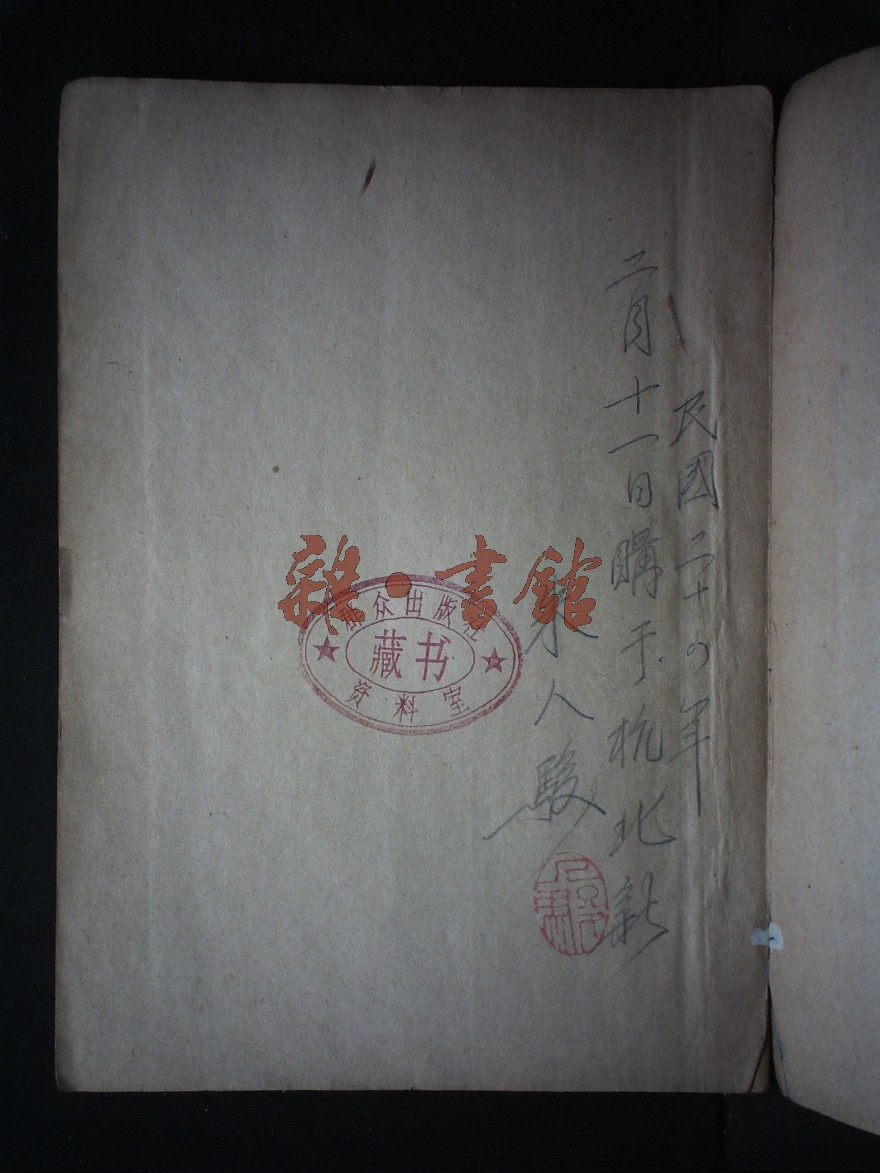 民國二十四年
二月十一日購于杭北新
人駿
雜·書館
群众出版社
藏书
资料室